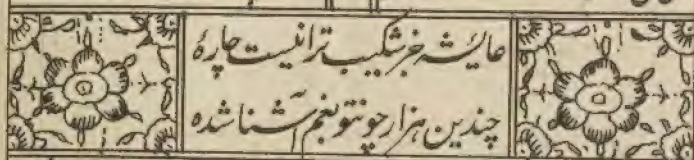 عایشه جز شکیب ترا نیست چارهٔ
چندین هزار چونتو بغم آشنا شده